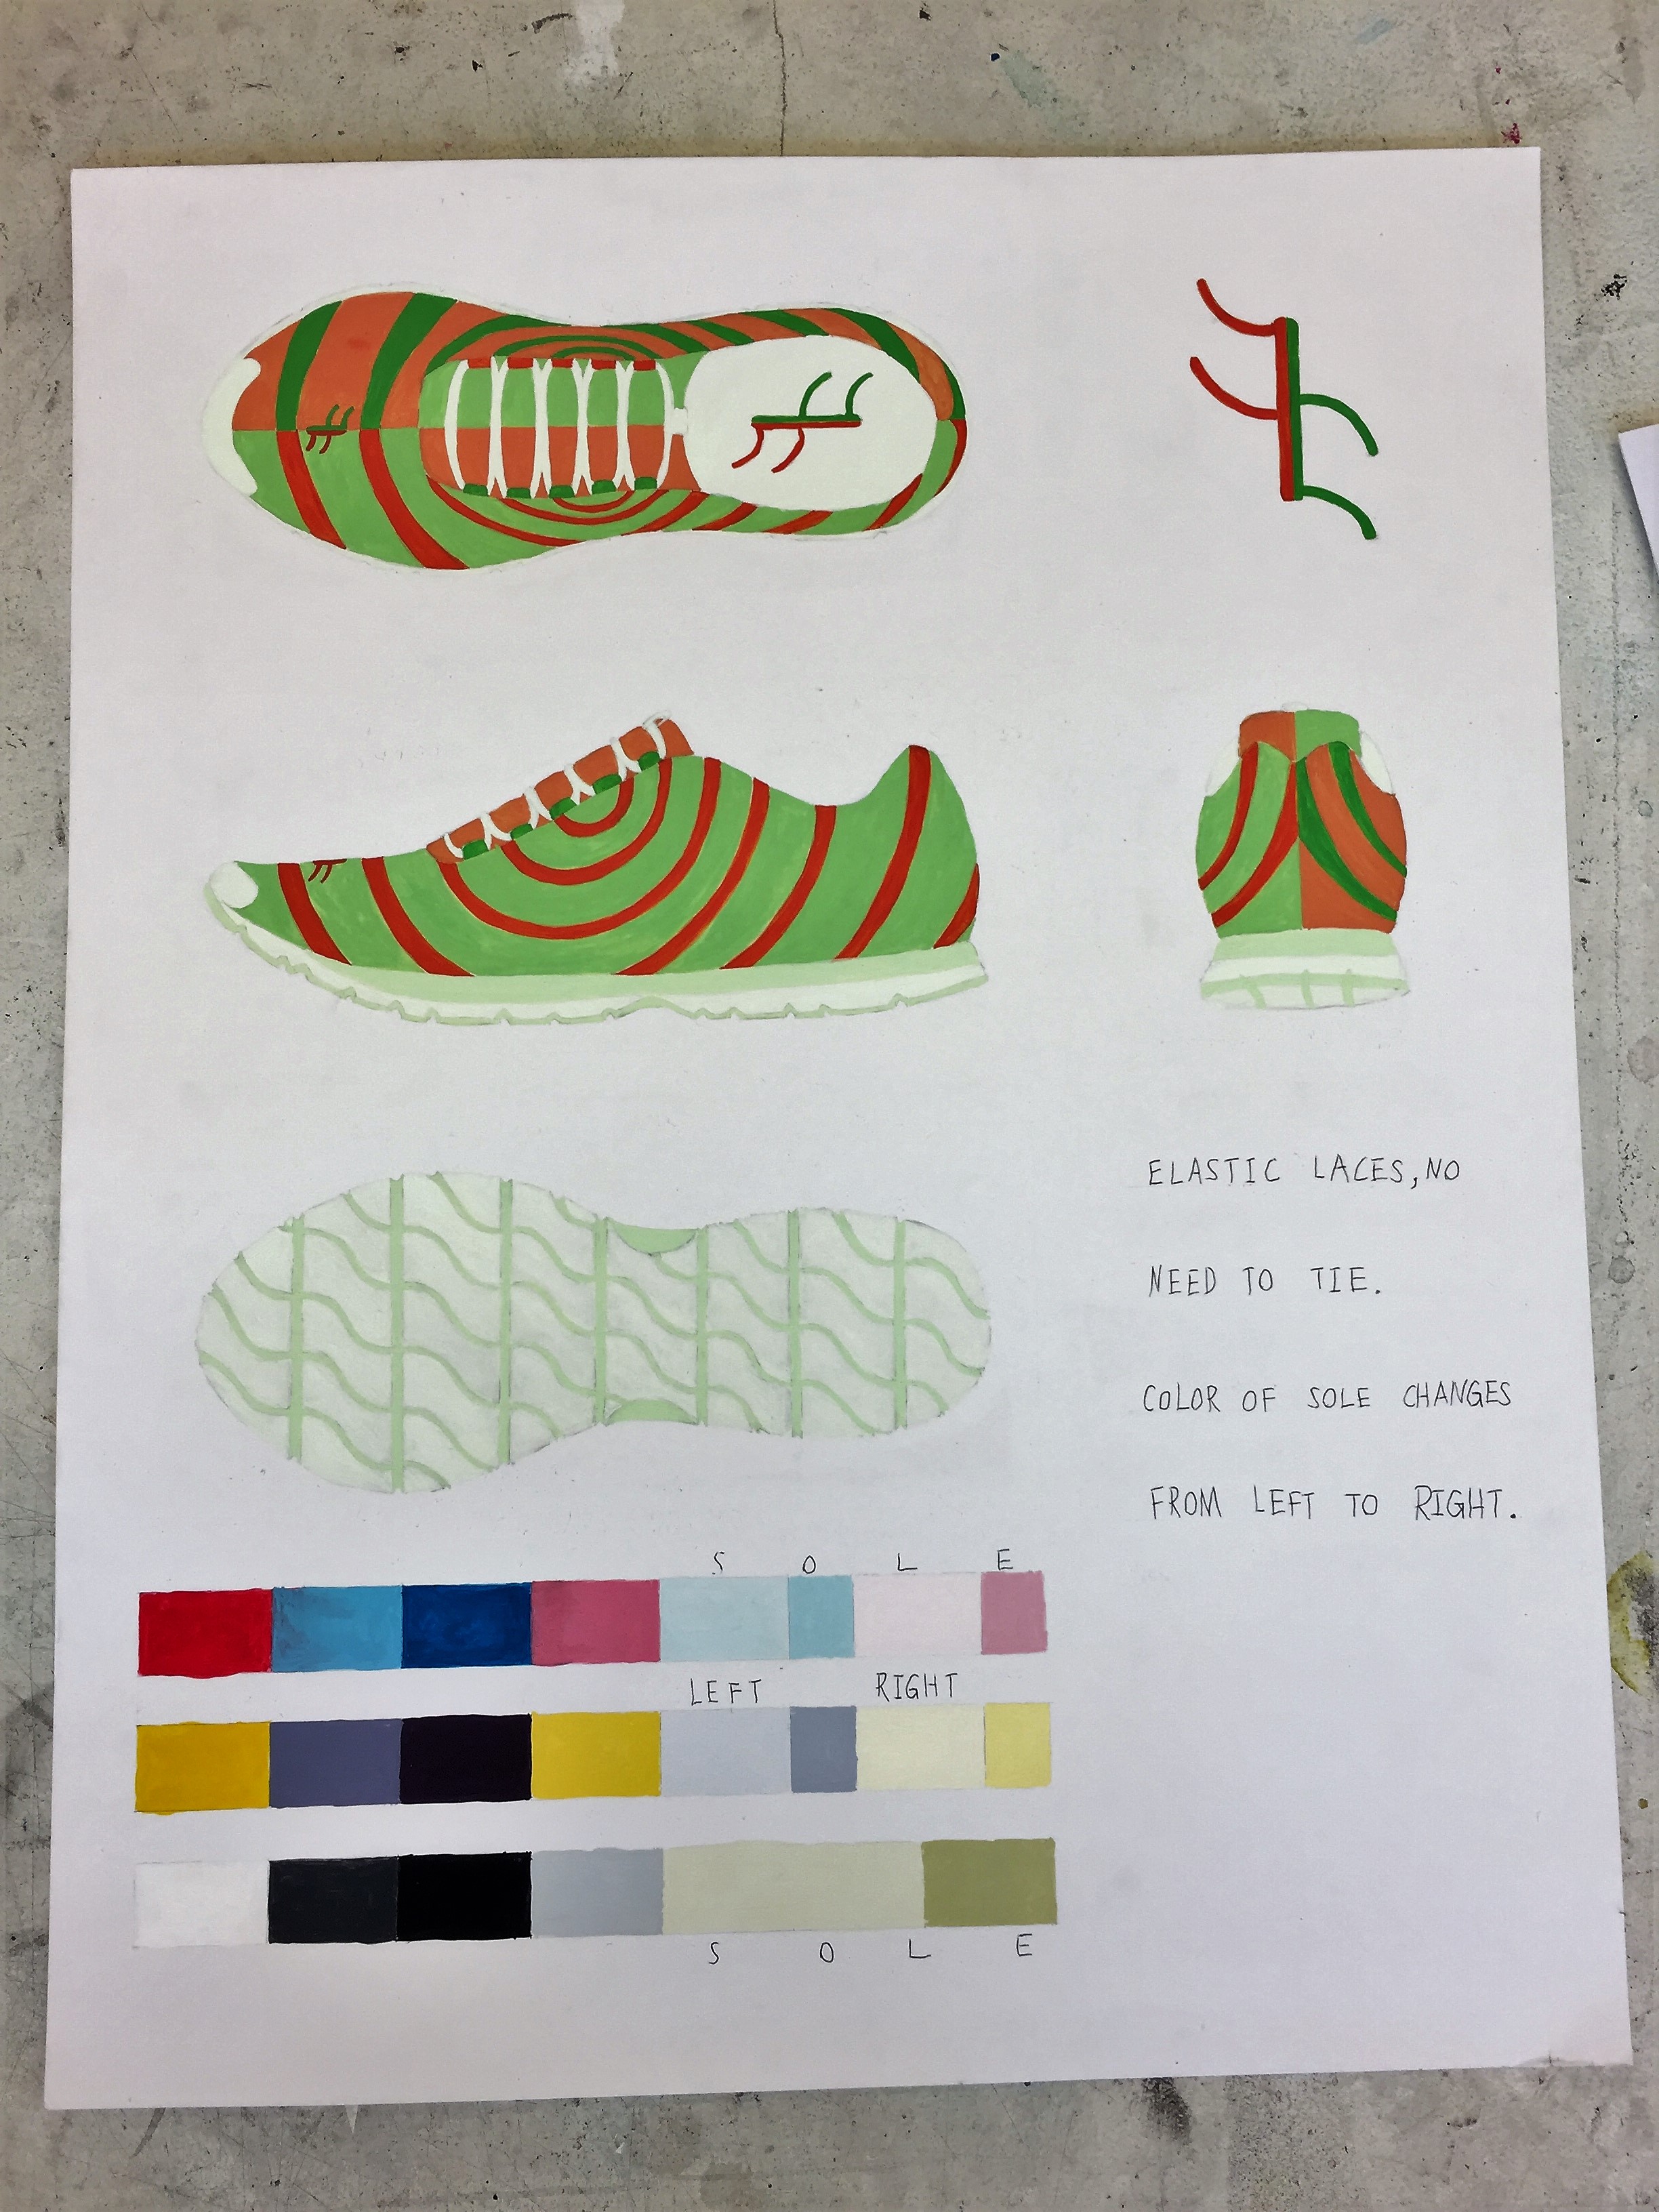 ELASTIC LACES, NO
NEED TO TIE.
COLOR OF SOLE CHANGES
FROM LEFT TO RIGHT.
S O L E
LEFT RIGHT
S O L E